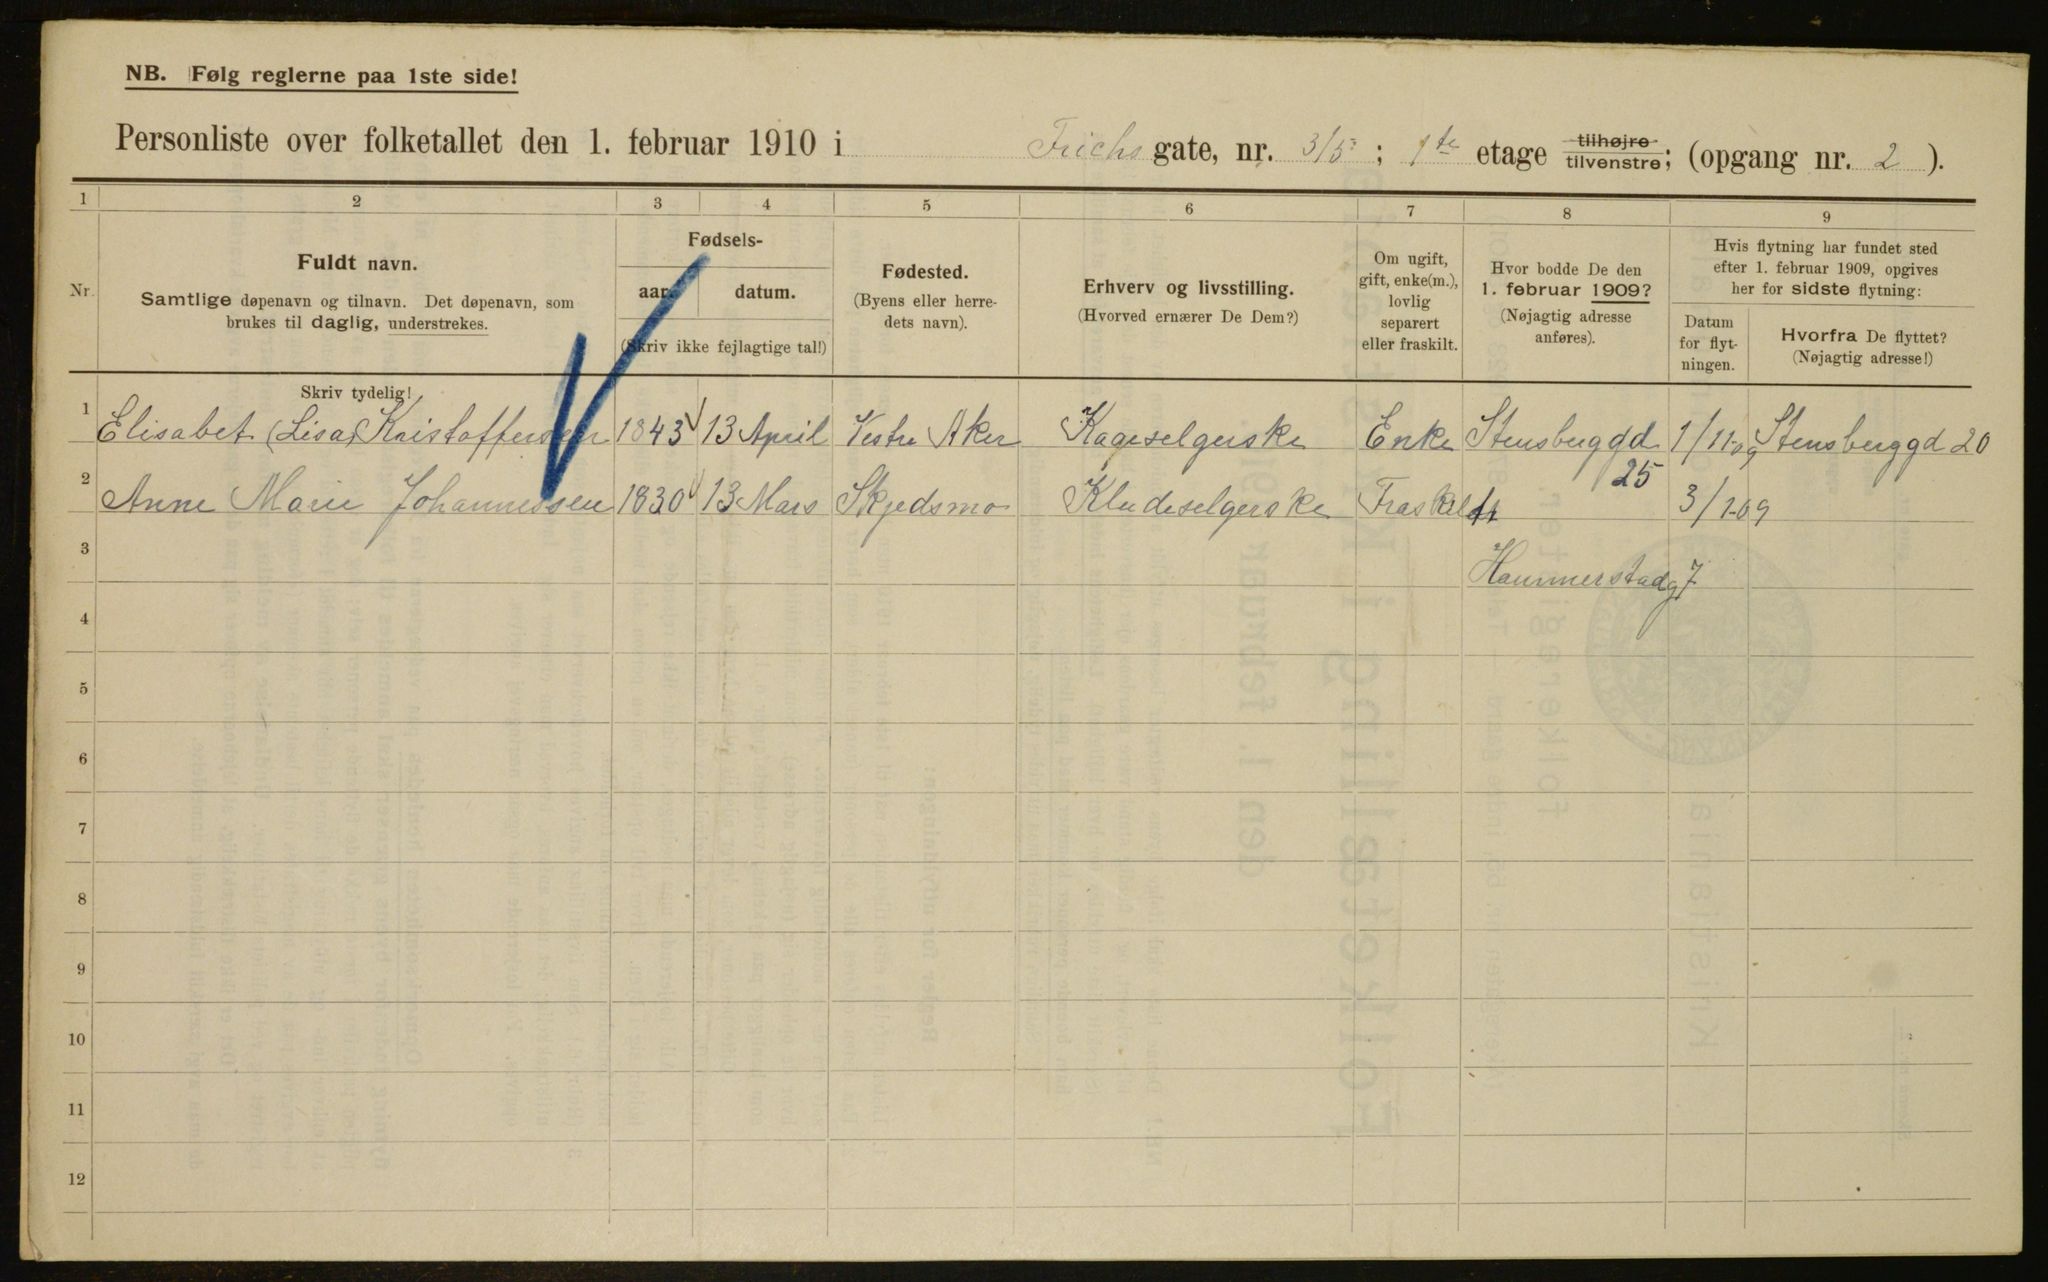 NB. Følg reglerne paa 1ste side!
Personliste over folketallet den 1. februar 1910 i Frichs gate, nr. 3/5 ; 1ste etage tilhøjre tilvenstre; (opgang nr. 2 ).
1 2 3 4 5 6 7 8 9
Nr.
Fuldt navn.
Samtlige døpenavn og tilnavn. Det døpenavn, som
brukes til daglig, understrekes.
Skriv tydelig!
Fødsels-
aar. datum.
(Skriv ikke fejlagtige tal!)
Fødested.
(Byens eller herre-
dets navn).
Erhverv og livsstilling.
(Hvorved ernærer De Dem?)
Om ugift,
gift, enke(m.),
lovlig
separert
eller fraskilt.
Hvor bodde De den
1. februar 1909?
(Nøjagtig adresse
anføres).
Hvis flytning har fundet sted
efter 1. februar 1909, opgives
her for sidste flytning:
Datum
for flyt-
ningen.
Hvorfra De flyttet?
(Nøjagtig adresse!)
1 Elisabet (Lisa) Kristoffersen 1843 13 April Vestre Aker Kageselgerske Enke Stensberggd 1/11-09 Stensberggd 20
25
2 Anne Marie Johannessen 1830 13 Mars Skjedsmo Kludeselgerske Fraskilt 3/1-09
3 Hammerstadg 7
4
5
6
7
8
9
10
11
12